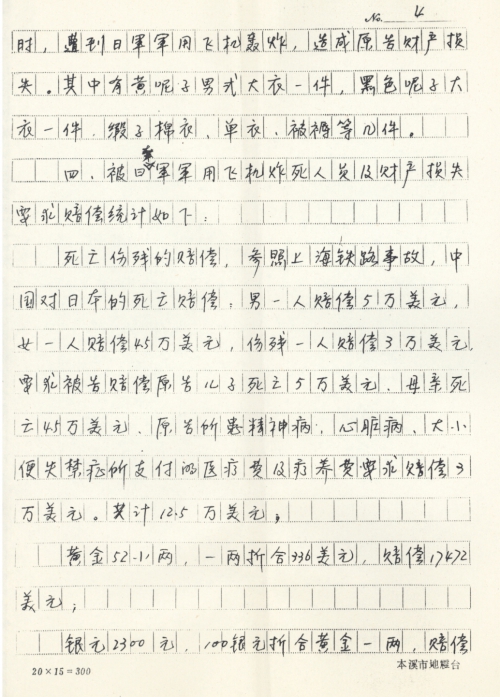 No. 4
时，遭到日军军用飞机轰炸，造成原告财产损
失。其中有黄呢子男式大衣一件，黑色呢子大
衣一件、缎子棉衣、单衣、被褥等几件。
四、被日军军用飞机炸死人员及财产损失
要求赔偿统计如下：
死亡伤残的赔偿，参照上海铁路事故，中
国对日本的死亡赔偿：男一人赔偿5万美元，
女一人赔偿4.5万美元，伤残一人赔偿3万美元.
要求被告赔偿原告儿子死亡5万美元、母亲死
亡4.5万美元、原告所患精神病、心脏病、大小
便失禁症所支付的医疗费及疗养费要求赔偿3
万美元。共计12.5万美元；
黄金52小两，一两折合336美元，赔偿17472
美元；
银元2300元，100银元折合黄金一两，赔偿
20×15＝300
本溪市地震台